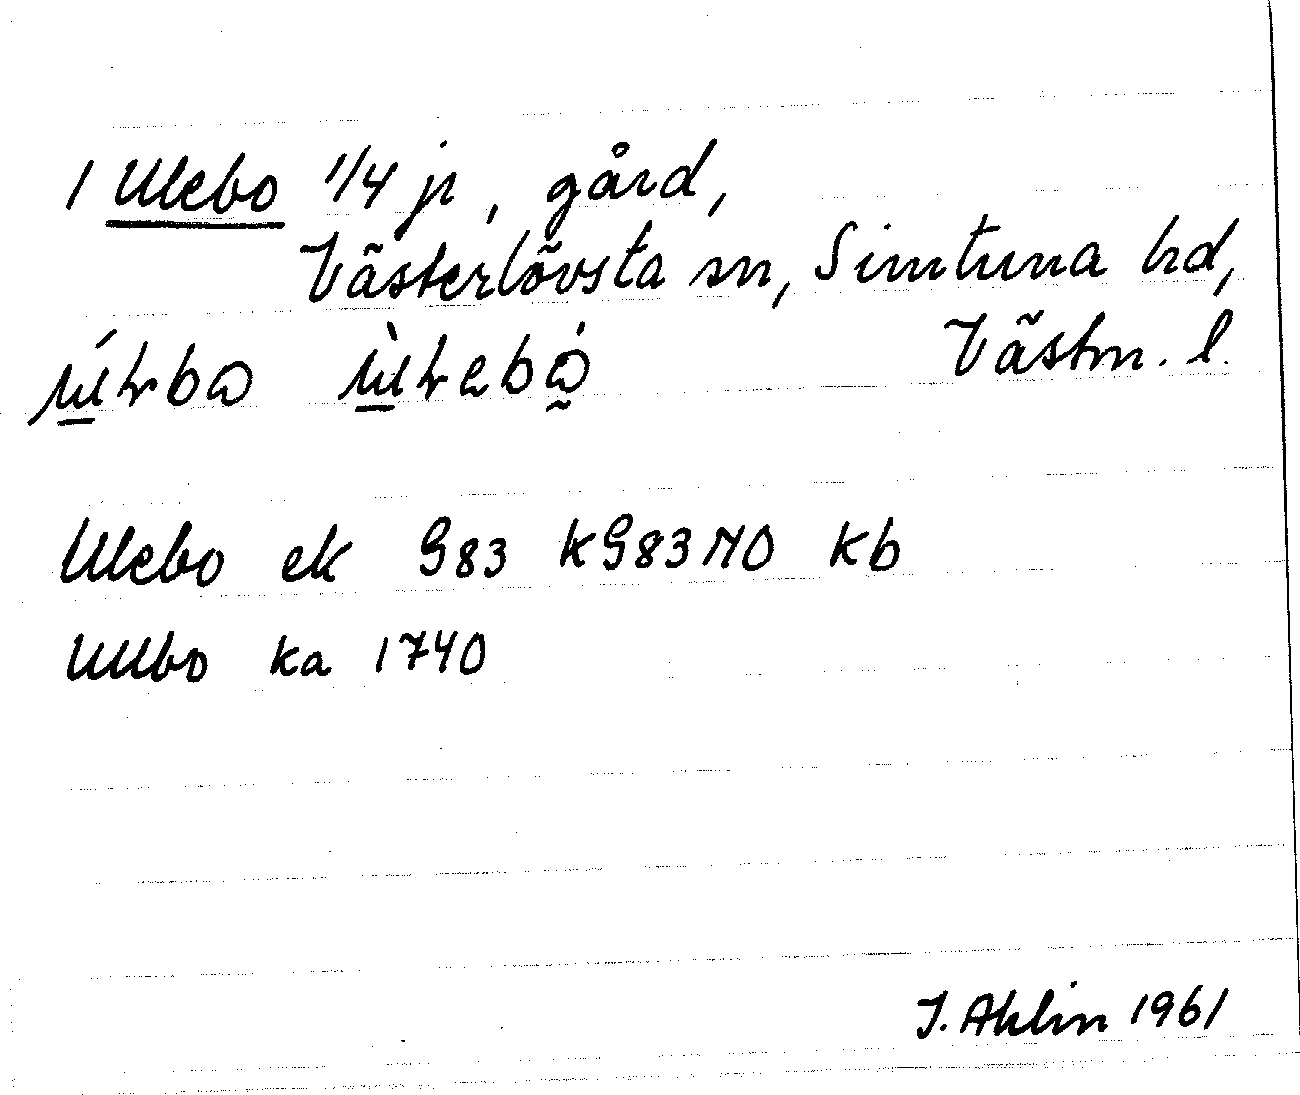 1 Ulebo 1/4 jr, gård,
Västerlövsta sn, Simtuna hd,
Västm. l.
Ulebo ek G83 kG83NO kb
Ullbo ka 1740
J. Ahlin 1961